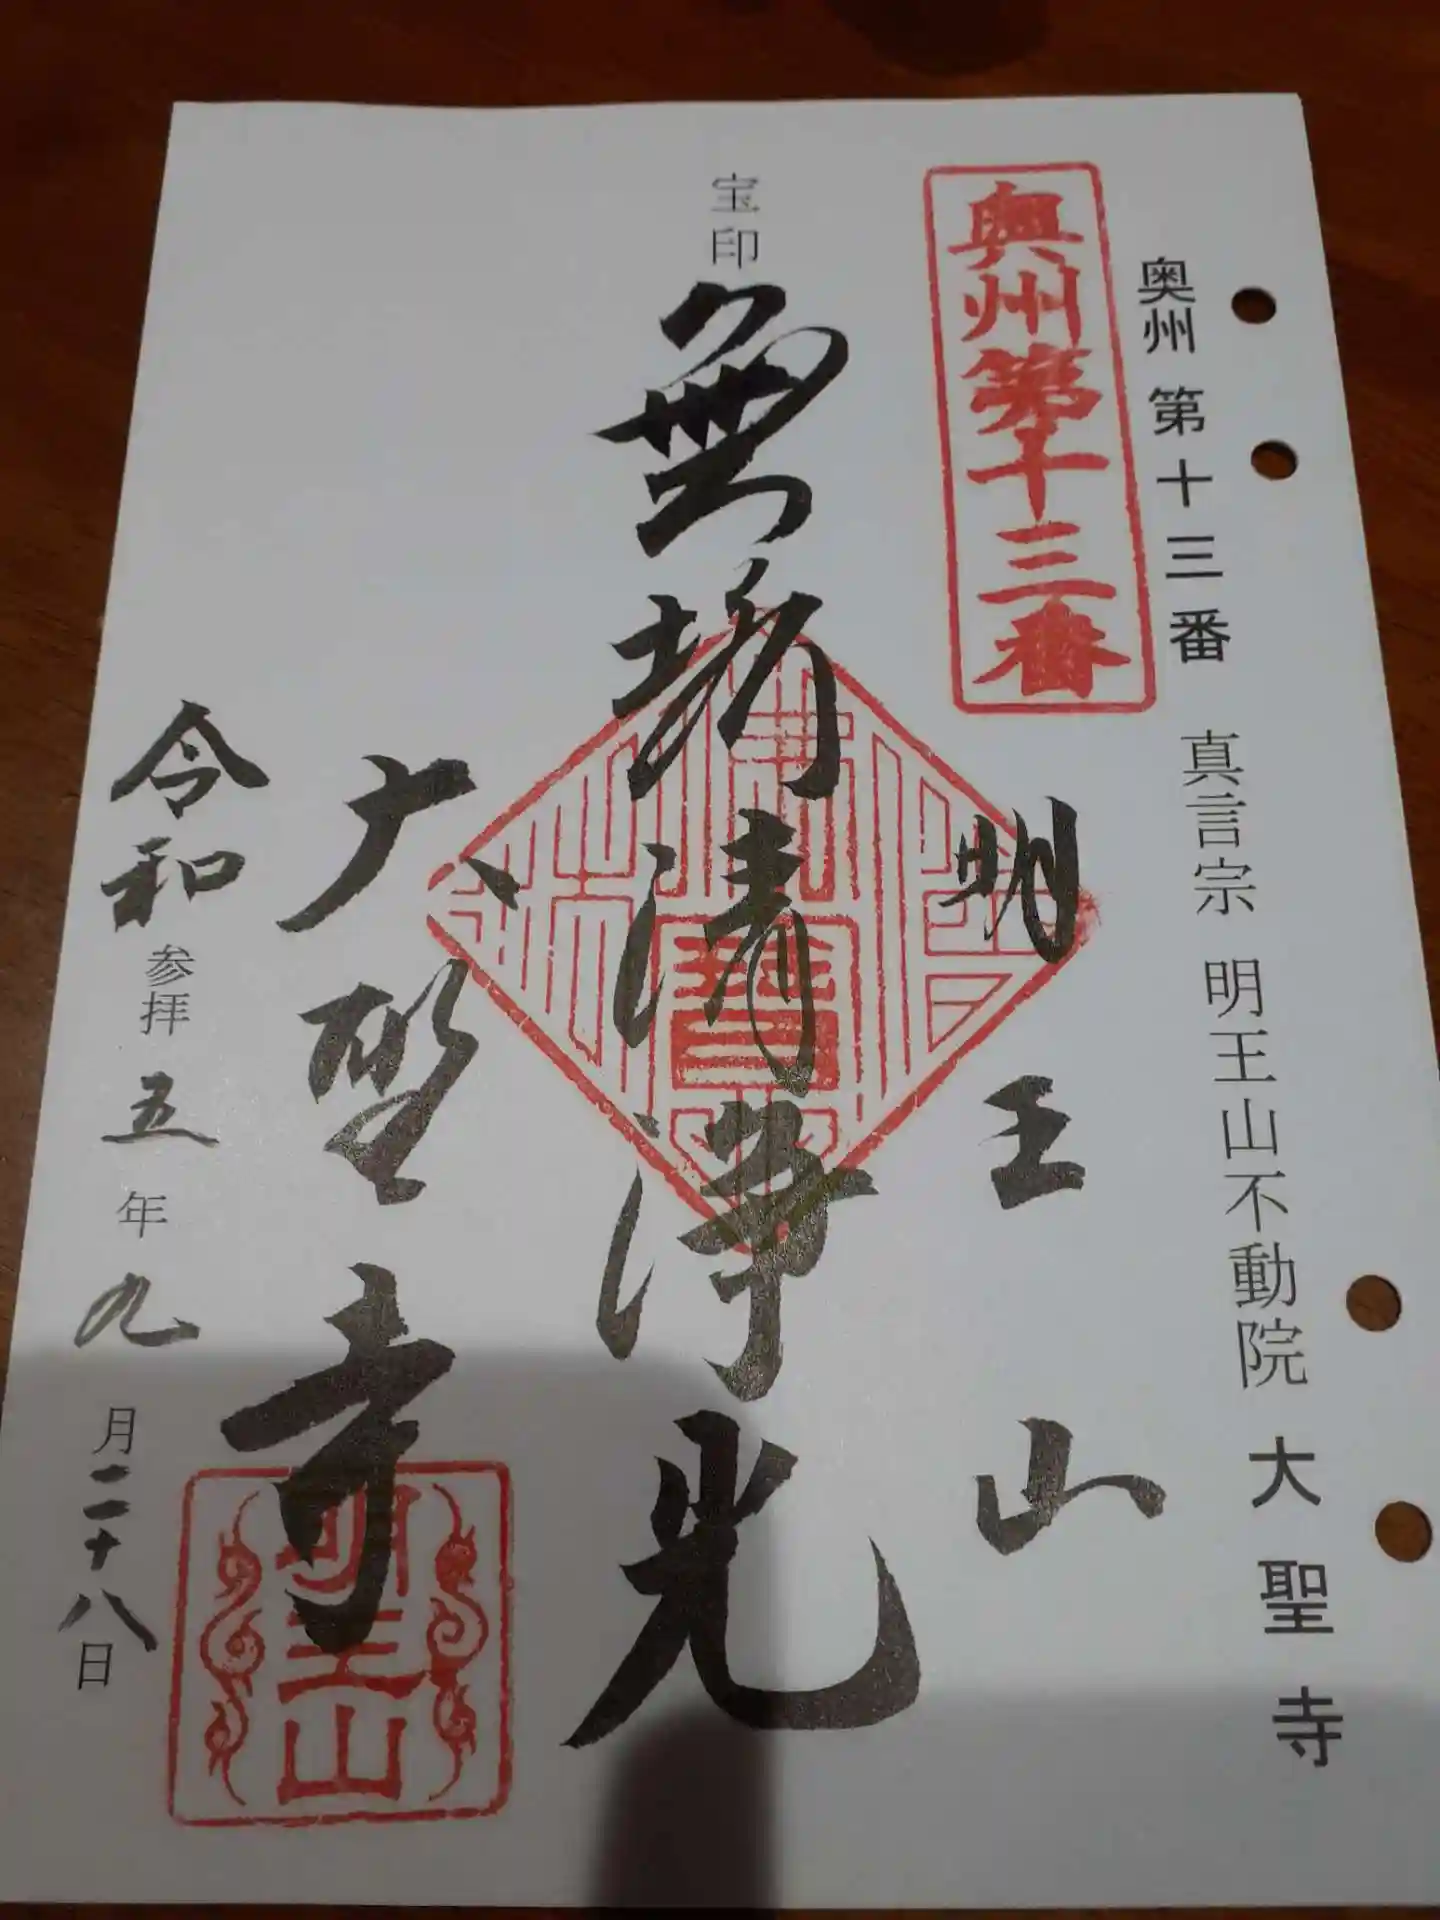 奥州 第十三番 真言宗 明王山不動院 大聖寺
奥州第十三番
明王山
宝印
無垢清浄光
大聖寺
明王山
令和 参拝 五年 九月二十八日